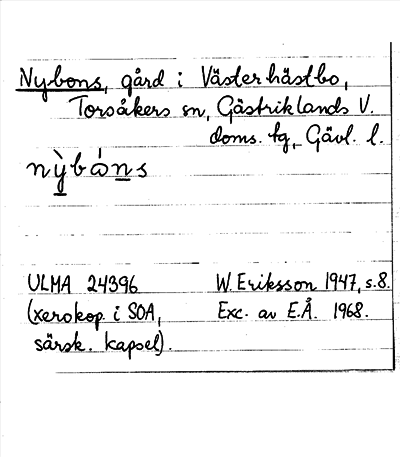 Nybons, gård i Västerhästbo,
Torsåkers sn, Gästriklands V.
doms. tg, Gävl. l.
nỳbόns
ULMA 24396 W. Eriksson 1947, s. 8.
(xerokop. i SOA, Exc. av E.Å. 1968.
särsk. kapsel).